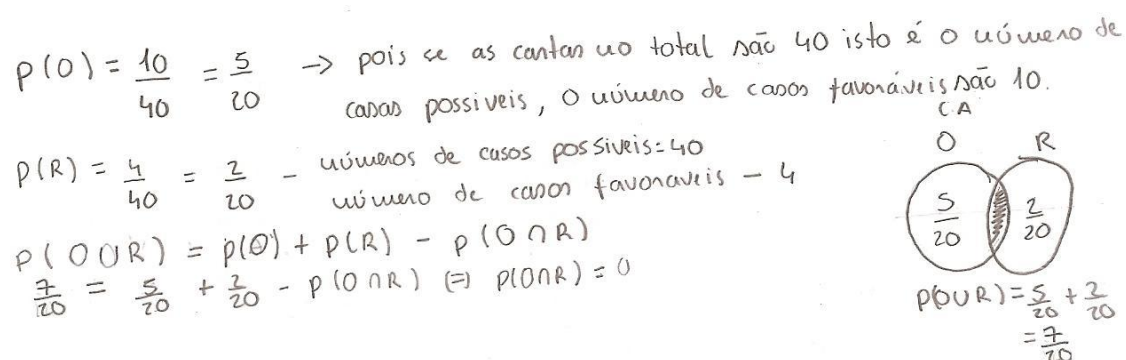 P(O) = 10/40 = 5/20 → pois se as cartas no total são 40 isto é o número de
casos possiveis, O número de casos favoráveis são 10.
P(R) = 4/40 = 2/20 - números de casos possiveis=40
número de casos favoraveis - 4
P(O∪R) = p(O) + P(R) - p(O∩R)
7/20 = 5/20 + 2/20 - P(O∩R) (=) P(O∩R) = 0
C.A
O R
5/20 2/20
P(O∪R) = 5/20 + 2/20
= 7/20